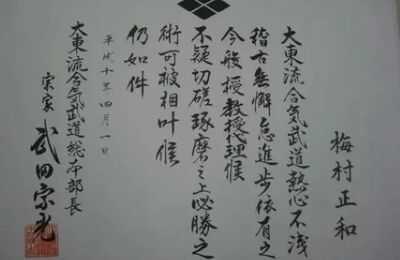 梅村正和
大東流合気武道熱心不浅
稽古無懈怠進歩依有之
今般授教授代理候
不疑切磋琢磨之上必勝之
術可被相叶候
仍如件
平成十年四月一日
大東流合気武道総本部長
宗家 武田宗光